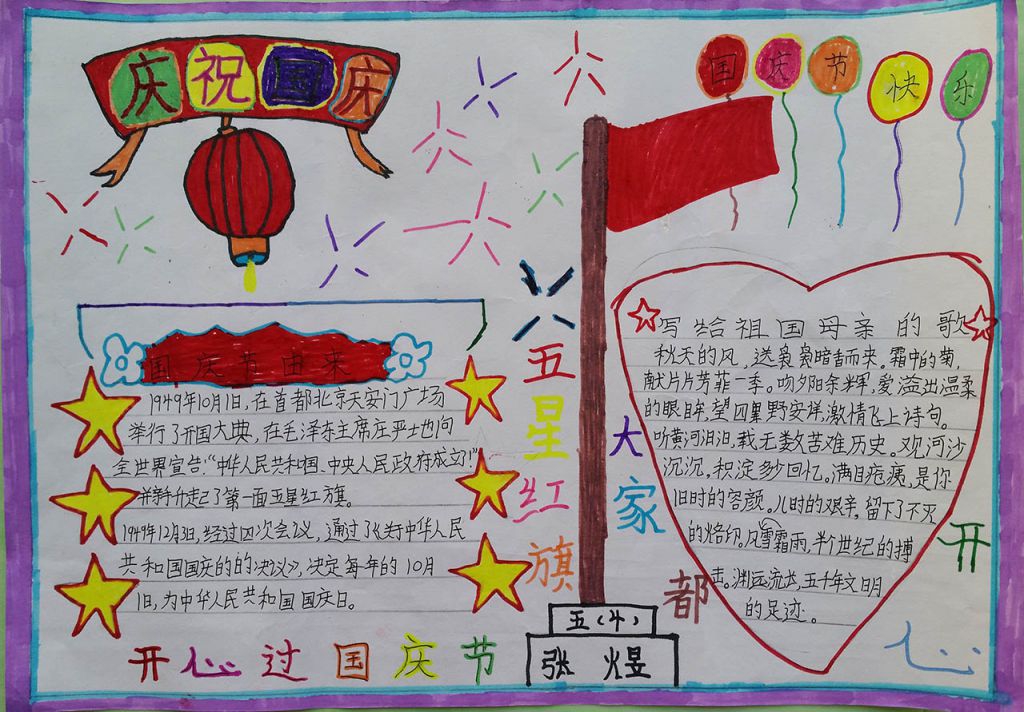 庆祝国庆
国庆节快乐
国庆节由来
1949年10月1日，在首都北京天安门广场
举行了开国大典，在毛泽东主席庄严地向
全世界宣告：“中华人民共和国、中央人民政府成立了！”
并新升起了第一面五星红旗。
1949年12月3日，经过四次会议，通过了《关于中华人民
共和国国庆的的决议》，决定每年的10月
1日，为中华人民共和国国庆日。
五星红旗
大家都开心
写给祖国母亲的歌
秋天的风，送袅袅暗香而来。霜中的菊，
献片片芳菲一季。吻夕阳余辉，爱溢出温柔
的眼眸，望四野安详，激情飞上诗句。
听黄河汨汨，载无数苦难历史。观河沙
沉沉，积淀多少回忆。满目疮痍，是你
旧时的容颜。儿时的艰辛，留下了不灭
的烙印。风雪霜雨，半个世纪的搏
击。渊远流长，五十年文明
的足迹。
开心过国庆节
五（4）
张煜